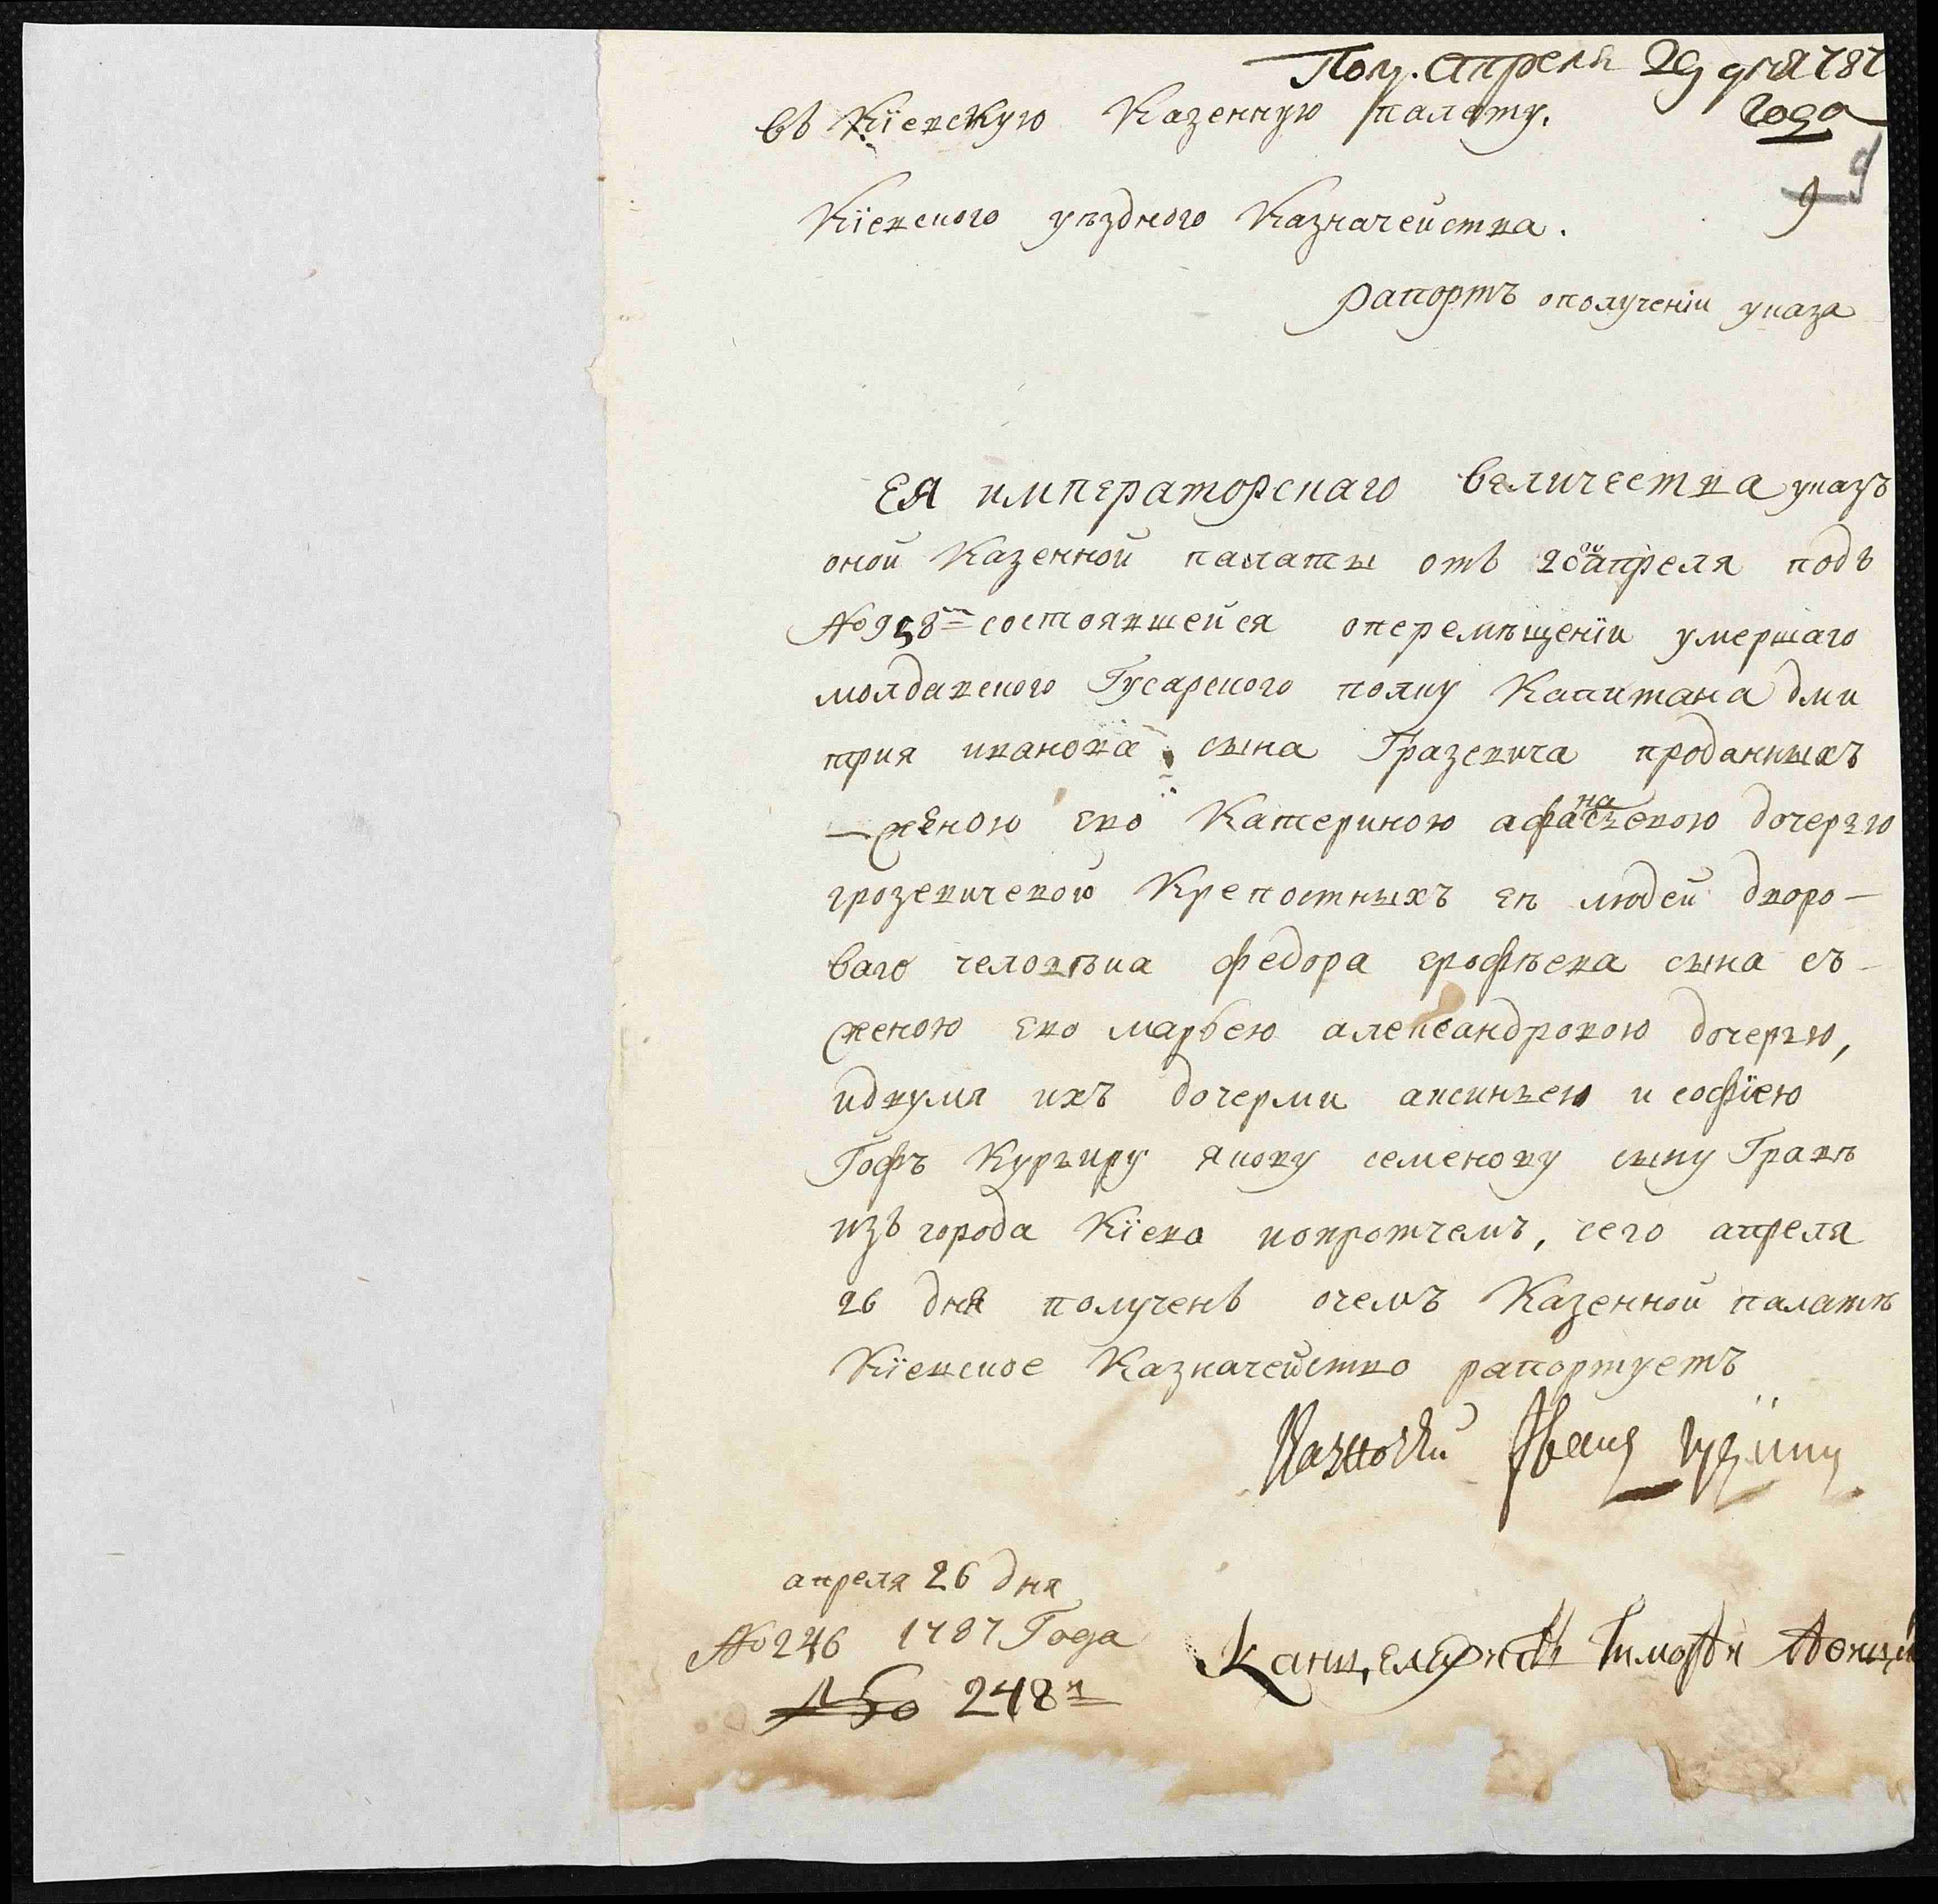 Пол. апреля 29 дня 1787
года
въ Кїевскую Казенную палату.
9
9
Кїевского уѣздного Казначейства.
рапортъ ополученіи указа
ЕЯ императорскаго величества указъ
оной Казенной палаты отъ 20го апреля подъ
№ 958м состоявшейся оперемѣщенїи умершаго
молдавского Гусарского полку Капитана дми
трия иванова сына Гразевича проданныхъ
женою ево Катериною афанасъевою дочерью
грозевичевою Крепостныхъ еѣ людей дворо-
ваго человѣка федора ерофѣева сына съ-
женою ево марвею александровою дочерью,
идвумя ихъ дочерми аксиньею и софїею
Гофъ Курьиру якову семенову сыну Граве
изъ города Кїева ивпротчемъ, сего апреля
26 дня полученъ очемъ Казенной палатѣ
Кїевское Казначейство рапортуетъ
Казночей Иванъ
апреля 26 дня
№ 246 1787 Года
Канцеляристъ Тимофѣй
№ 248й